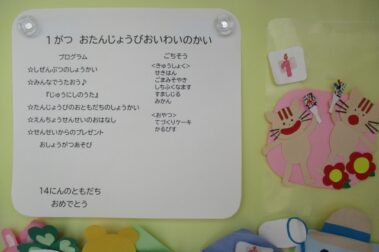 1がつ おたんじょうびおいわいのかい
プログラム
☆しぜんぶつのしょうかい
☆みんなでうたおう♪
『じゅうにしのうた』
☆たんじょうびのおともだちのしょうかい
☆えんちょうせんせいのおはなし
☆せんせいからのプレゼント
おしょうがつあそび
14にんのともだち
おめでとう
ごちそう
<きゅうしょく>
せきはん
ごまみそやき
しちふくなます
すましじる
みかん
<おやつ>
てづくりケーキ
かるぴす
1